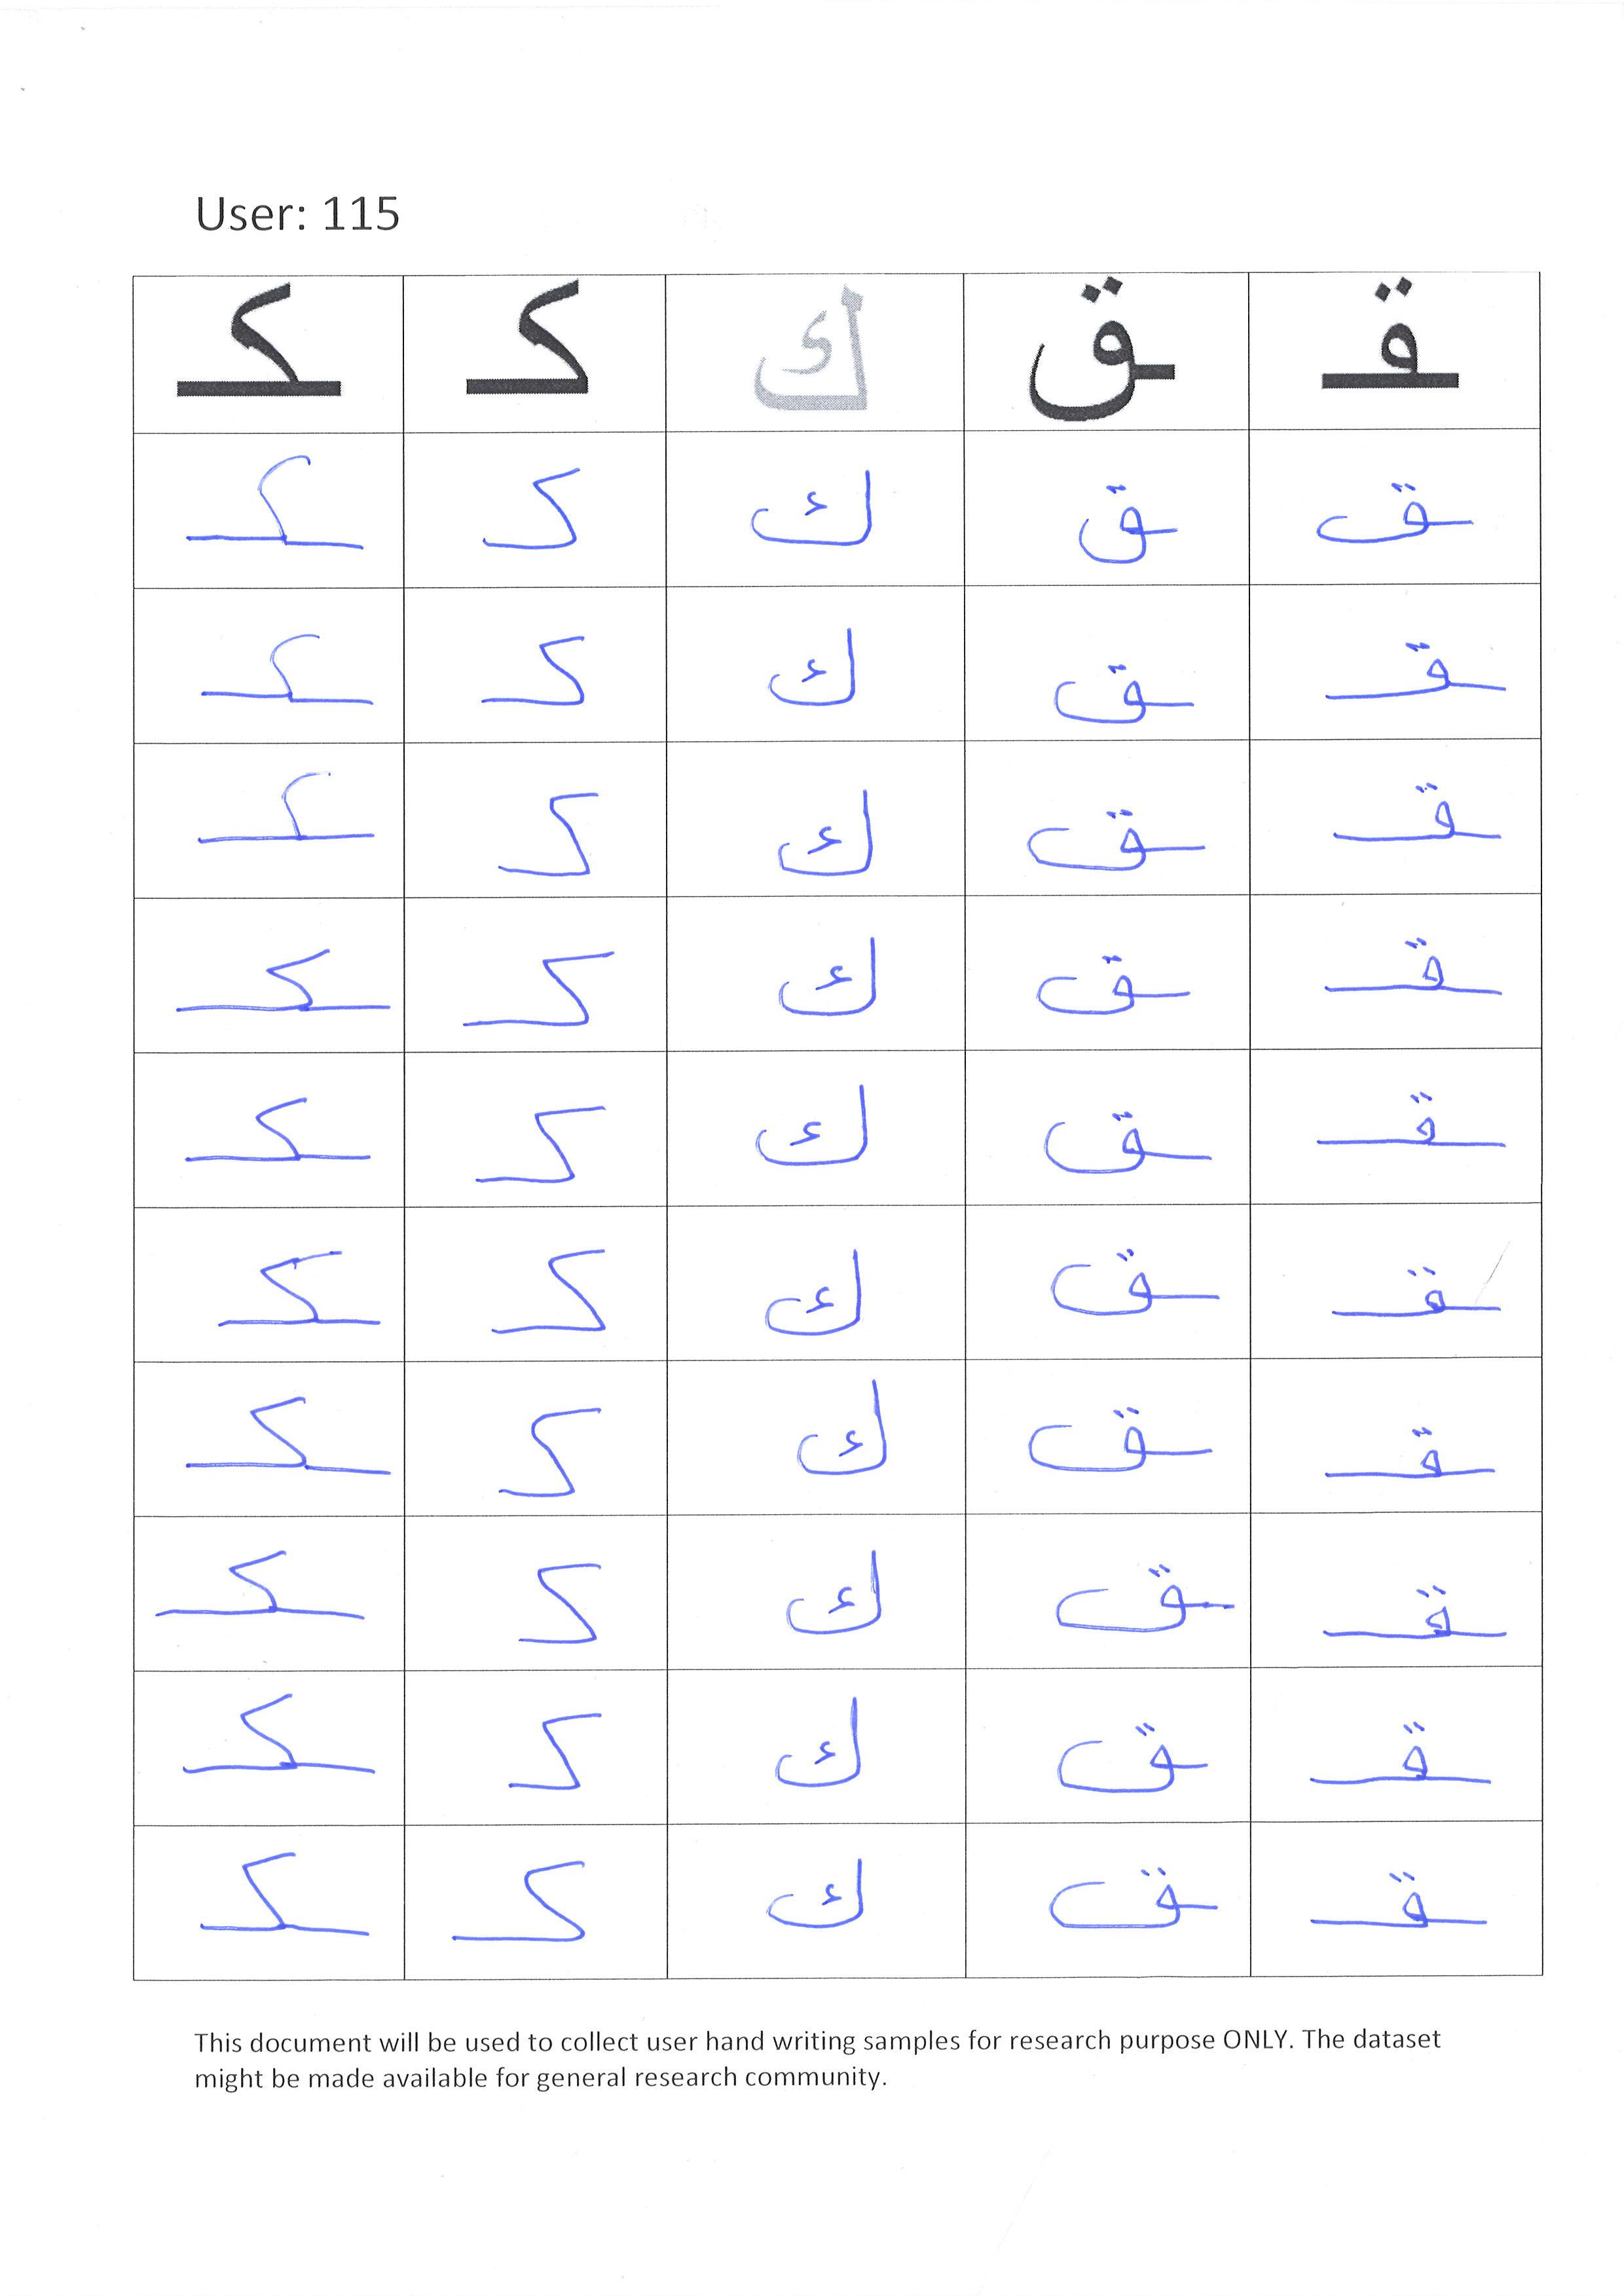 User: 115
ـقـ ـق ك كـ ـكـ
ـق ـق ك كـ ـكـ
ـقـ ـق ك كـ ـكـ
ـقـ ـق ك كـ ـكـ
ـقـ ـق ك كـ ـكـ
ـقـ ـق ك كـ ـكـ
ـقـ ـق ك كـ ـكـ
ـقـ ـق ك كـ ـكـ
ـقـ ـق ك كـ ـكـ
ـقـ ـق ك كـ ـكـ
ـقـ ـق ك كـ ـكـ
This document will be used to collect user hand writing samples for research purpose ONLY. The dataset
might be made available for general research community.